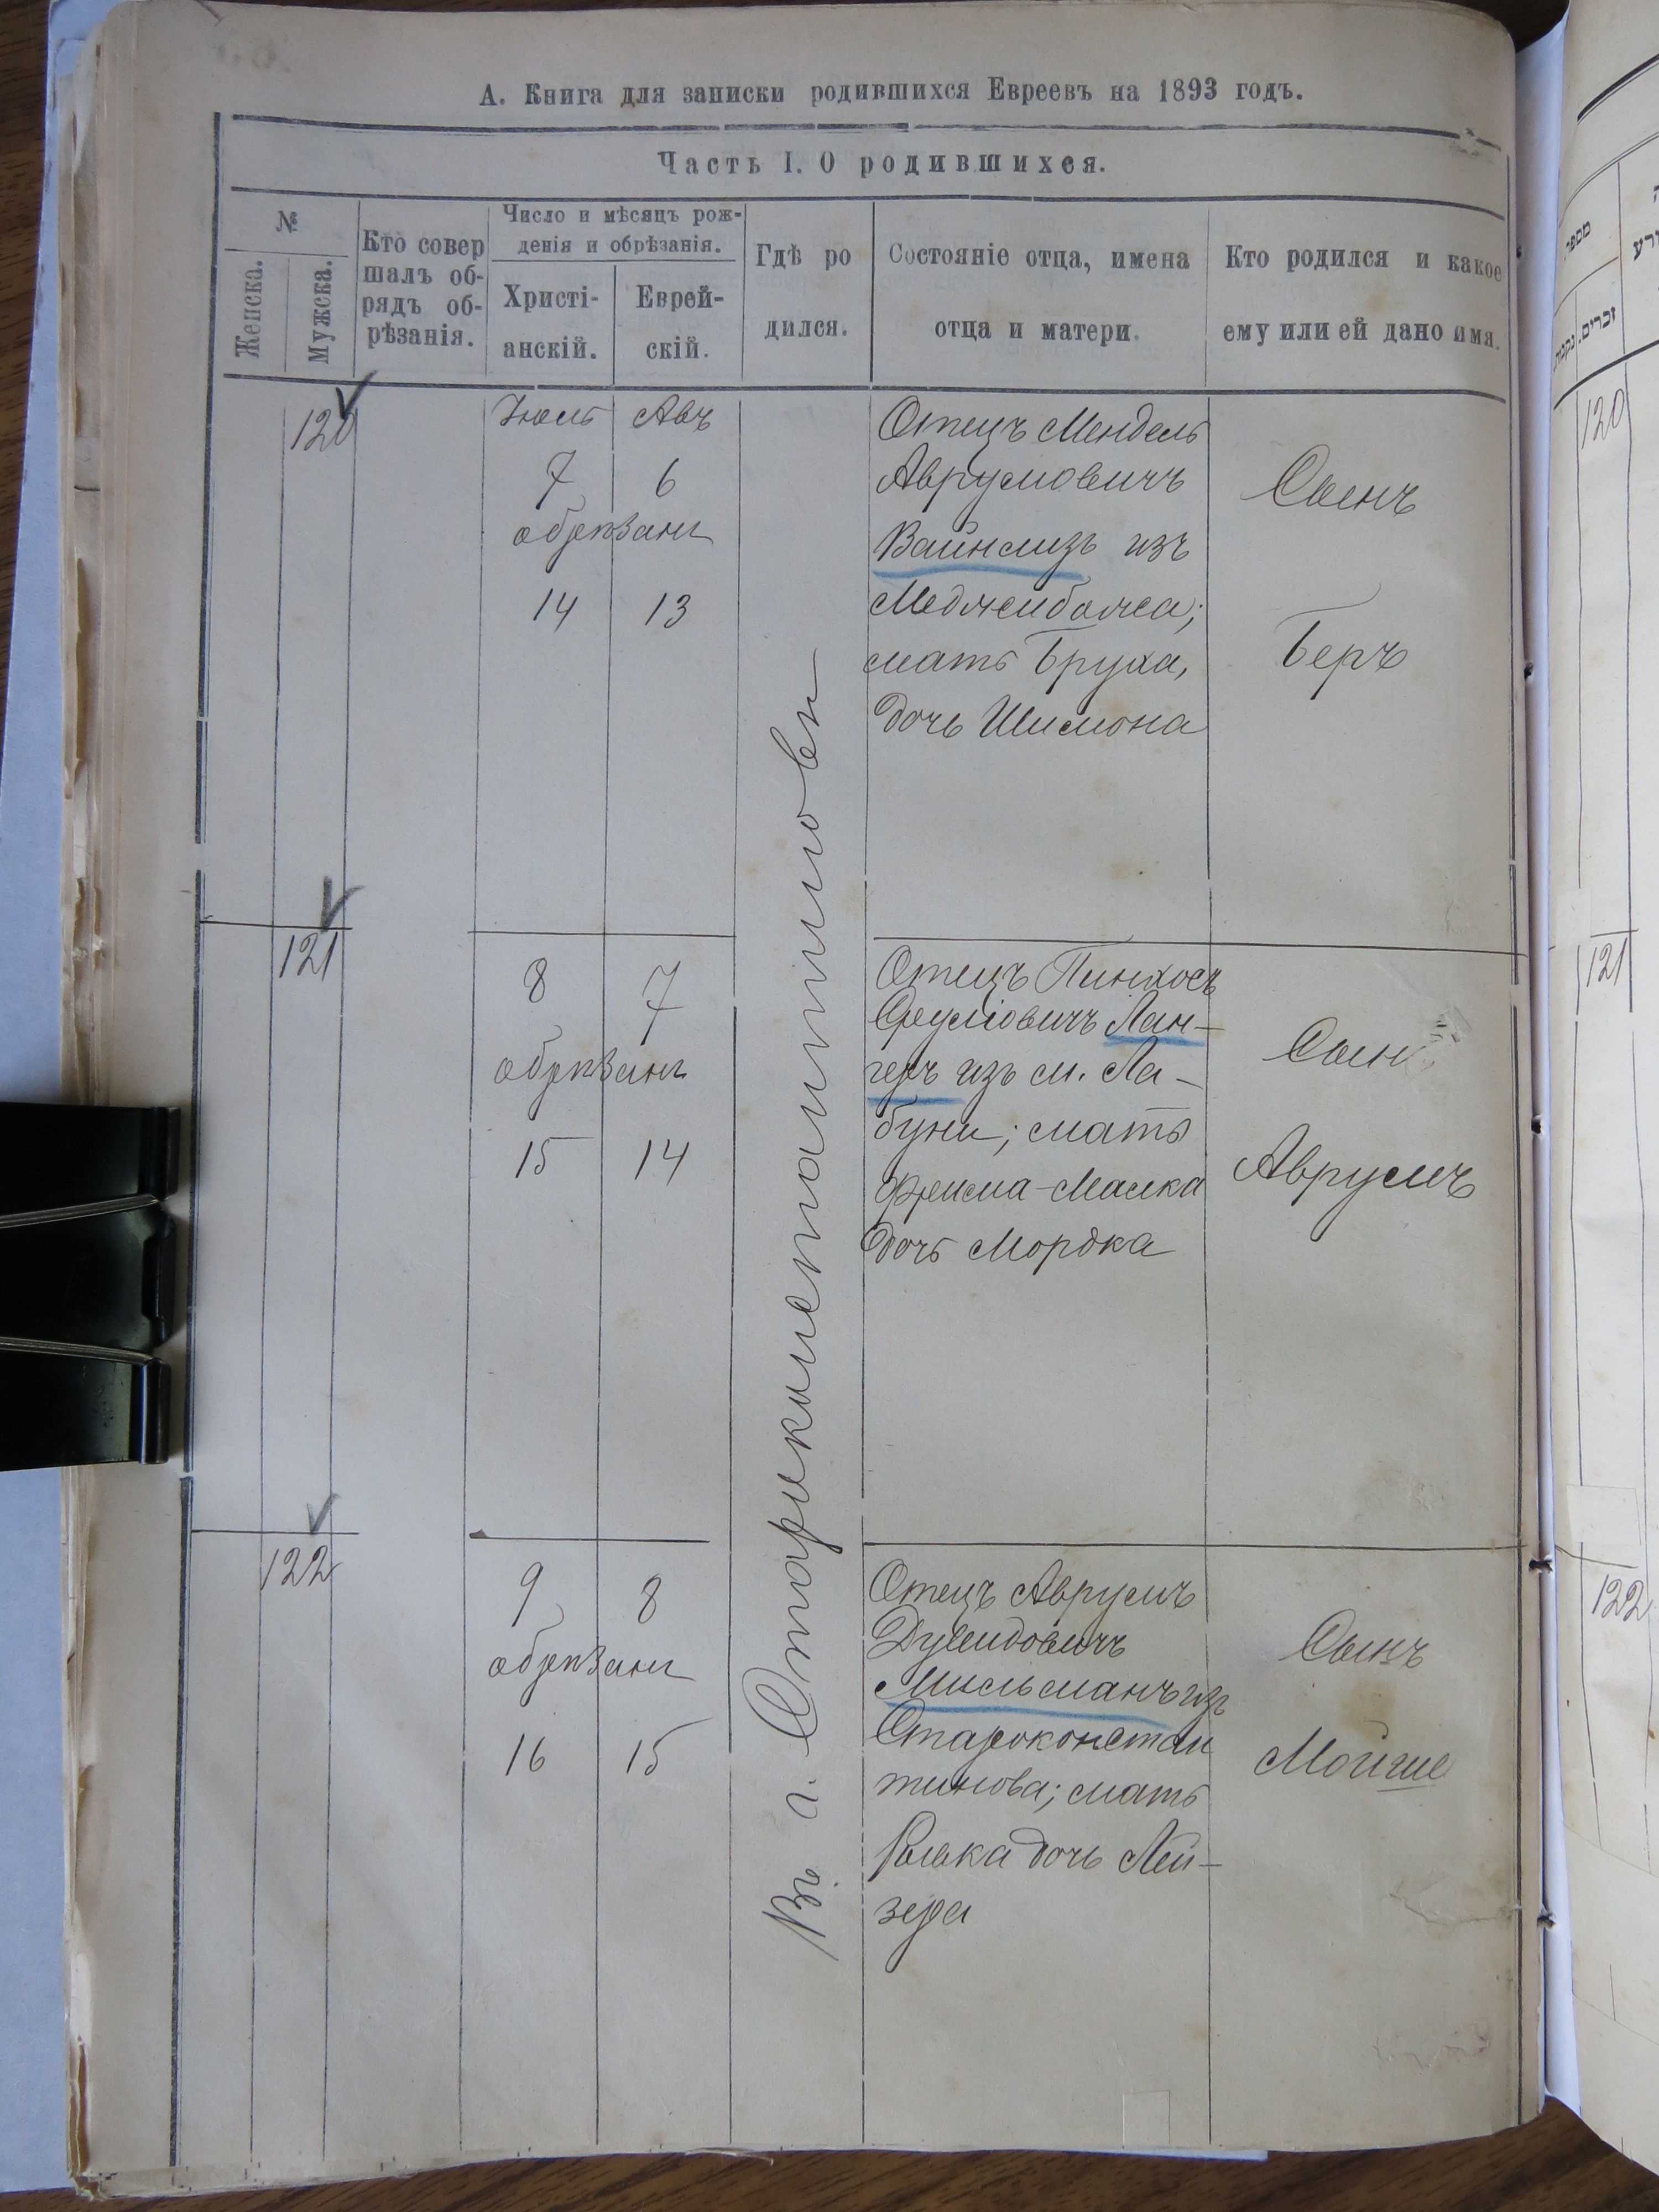 А. Книга для записки родившихся Евреевъ на 1893 годъ.
Часть I. О родившихся.
№
Женска.
Мужска.
Кто совер
шалъ об-
рядъ об-
рѣзанія.
Число и мѣсяцъ рож-
денія и обрѣзанія.
Христі-
анскій.
Еврей-
скій.
Гдѣ ро
дился.
Состояніе отца, имена
отца и матери.
Кто родился и какое
ему или ей дано имя.
120
Іюль Авъ
7 6
обрѣзанъ
14 13
Отецъ Мендель
Аврумовичъ
Вайнмизъ изъ
Меджибожа;
мать Бруха,
дочь Шимона
Сынъ
Беръ
121
8 7
обрѣзанъ
15 14
Отецъ Пинхосъ
Сруліовичъ Лан-
геръ изъ м. Ла-
буни; мать
Фрима-Малка
дочь Мордка
Сынъ
Аврумъ
122
9 8
обрѣзанъ
16 15
Отецъ Аврумъ
Дувидовичъ
Мильманъ изъ
Староконстан
тинова; мать
дочь Лей-
зера
Сынъ
Мойше
Въ г. Староконстантиновѣ
מספר
זכרים.
נקבות
120
121
122